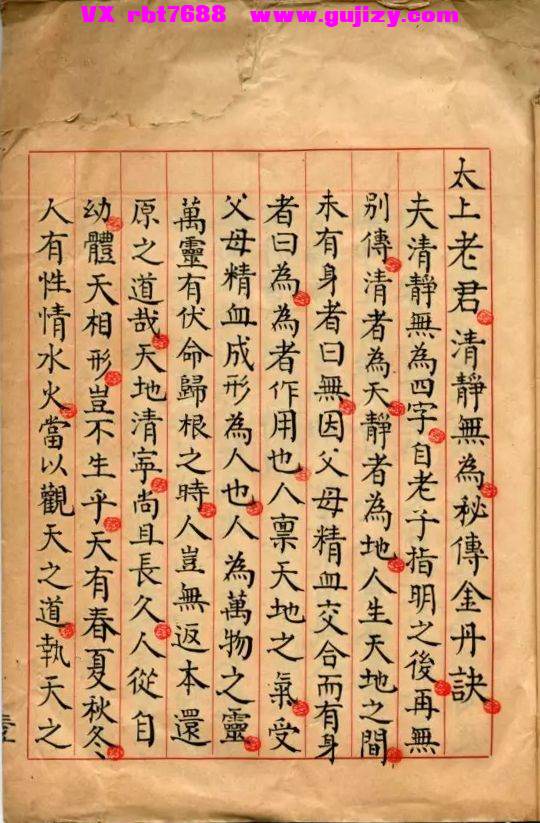 VX rbt7688 www.gujizy.com
太上老君清靜無為秘傳金丹訣
夫清靜無為四字自老子指明之後再無
別傳清者為天靜者為地人生天地之間
未有身者曰無因父母精血交合而有身
者曰為為者作用也人禀天地之氣受
父母精血成形為人也人為萬物之靈
萬靈有伏命歸根之時人豈無返本還
原之道哉天地清寧尚且長久人從自
幼體天相形豈不生乎天有春夏秋冬
人有性情水火當以觀天之道執天之